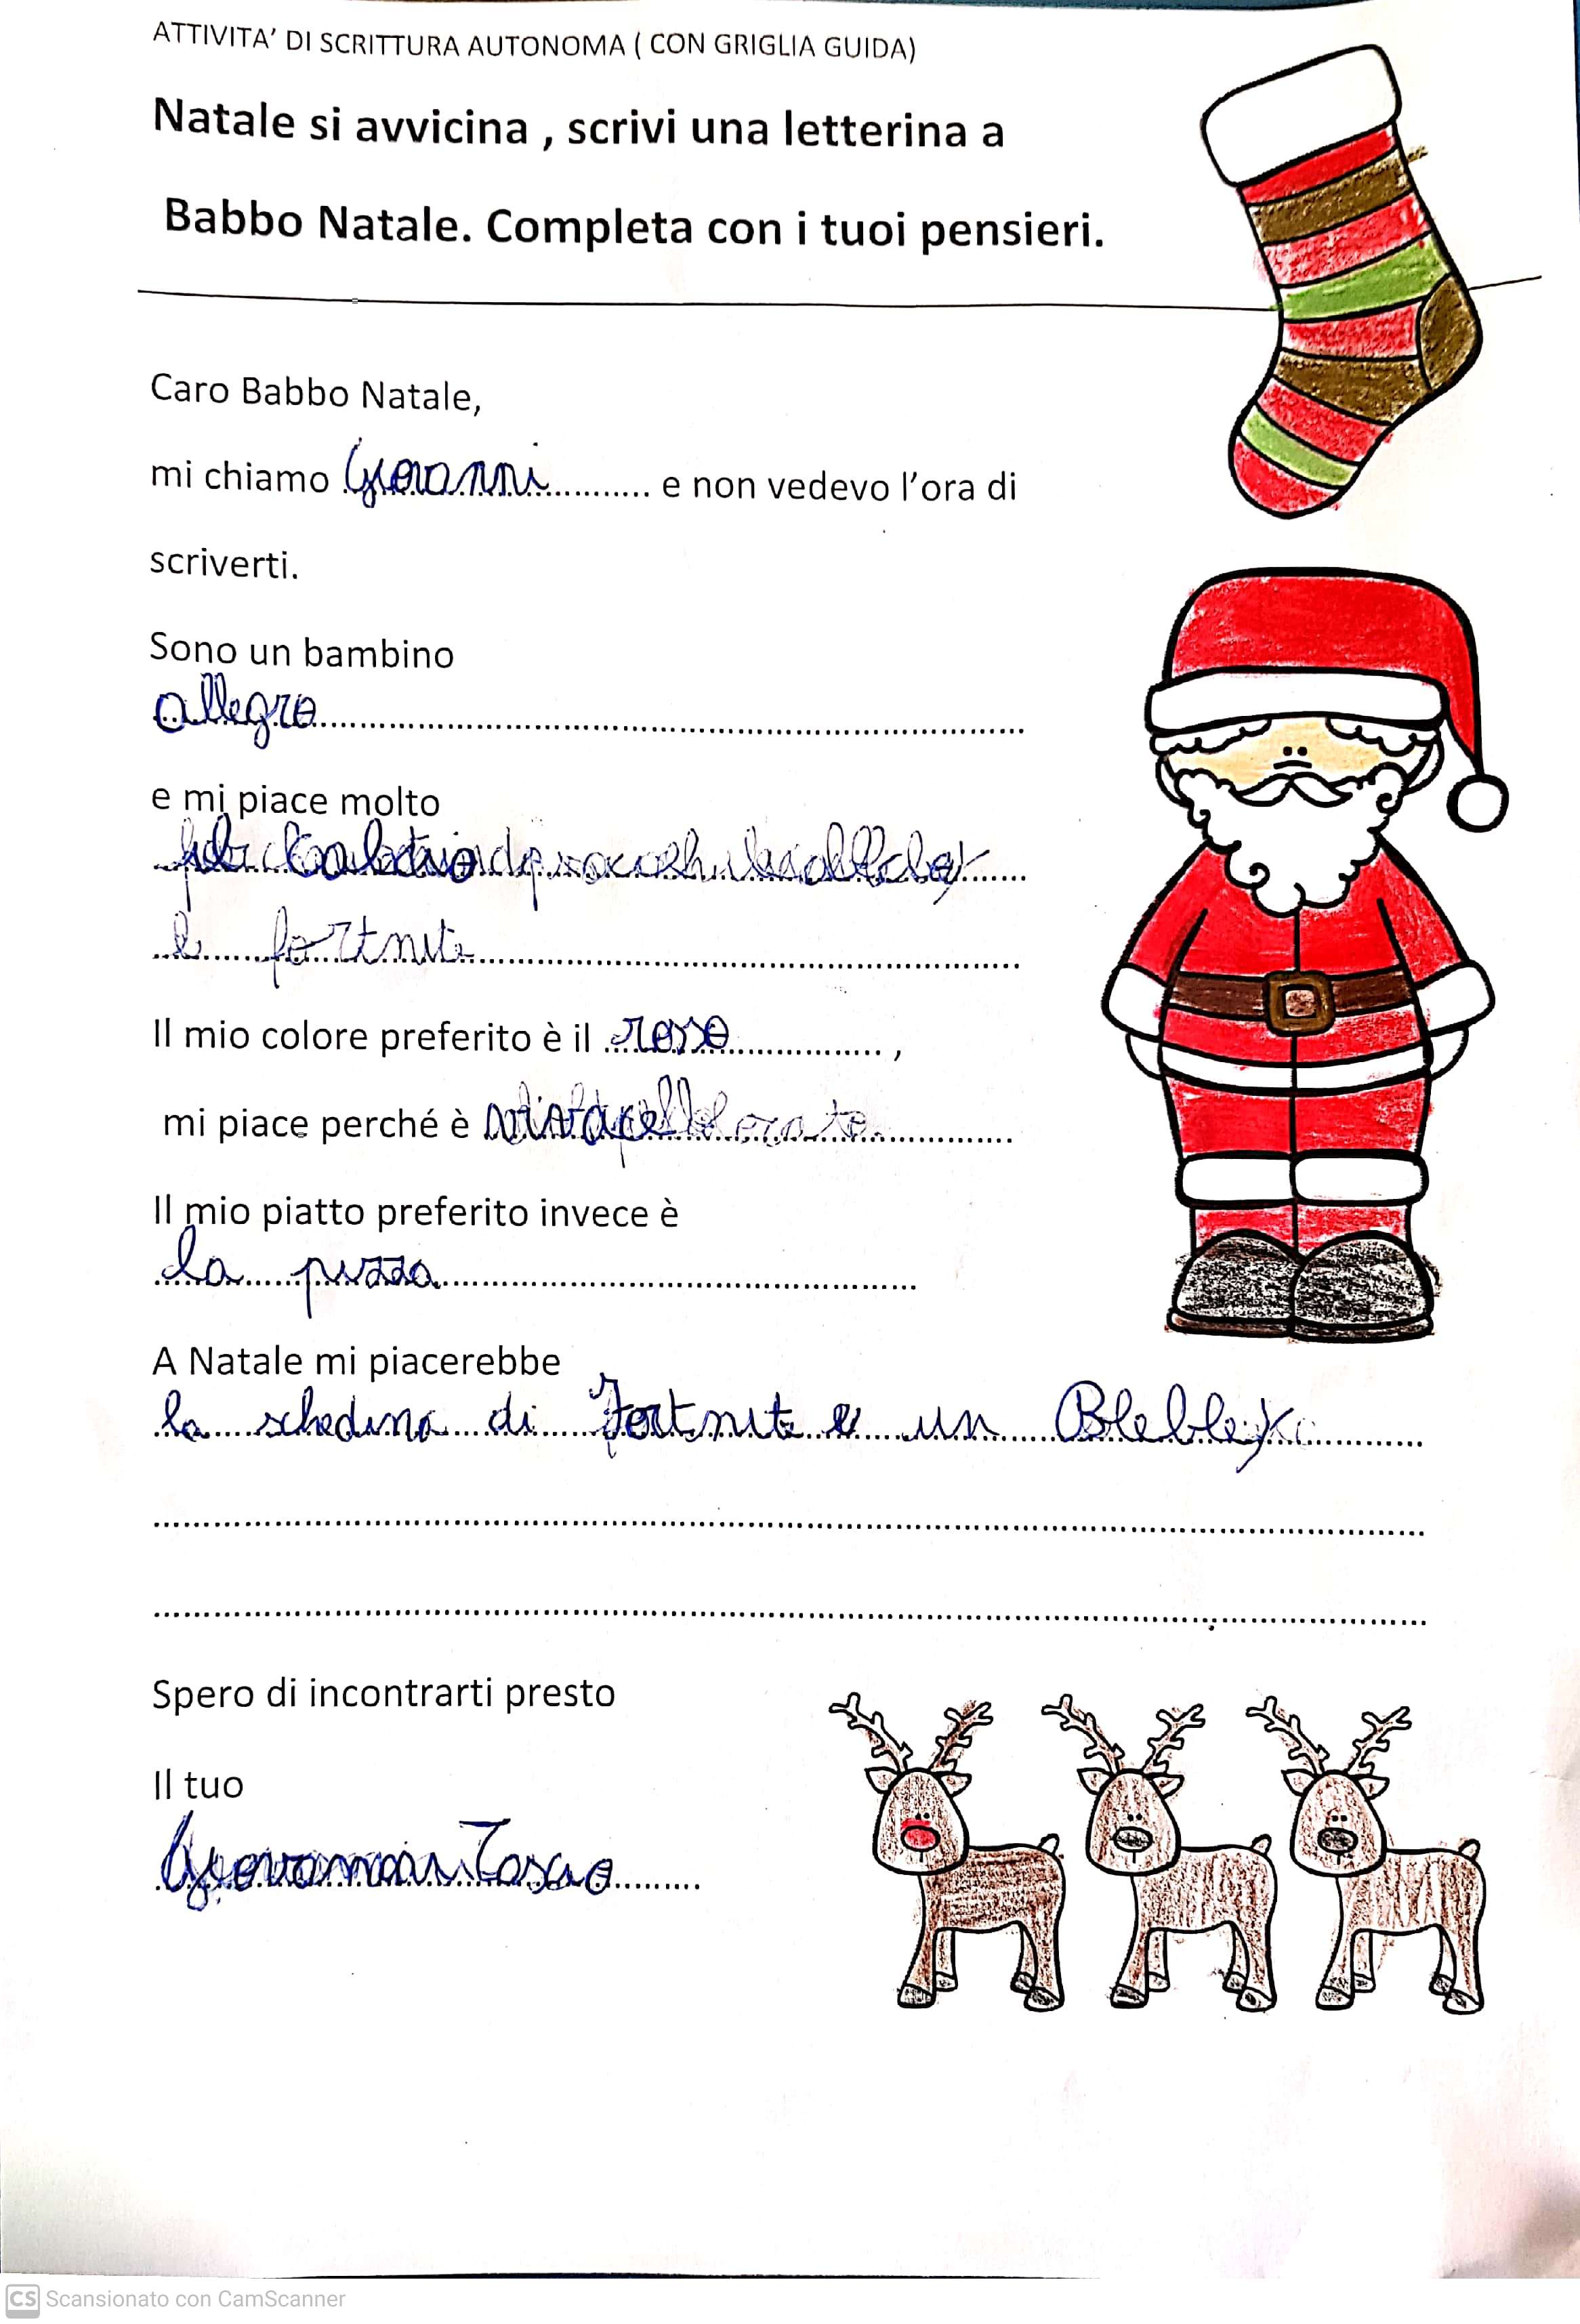 ATTIVITA' DI SCRITTURA AUTONOMA ( CON GRIGLIA GUIDA)
Natale si avvicina , scrivi una letterina a
Babbo Natale. Completa con i tuoi pensieri.
Caro Babbo Natale,
mi chiamo Giovanni e non vedevo l'ora di
scriverti.
Sono un bambino
allegro
e mi piace molto
e fortnite
Il mio colore preferito è il rosso ,
mi piace perché è vivace
Il mio piatto preferito invece è
la pizza
A Natale mi piacerebbe
la schedina di Fortnite e un
Spero di incontrarti presto
Il tuo
CS Scansionato con CamScanner